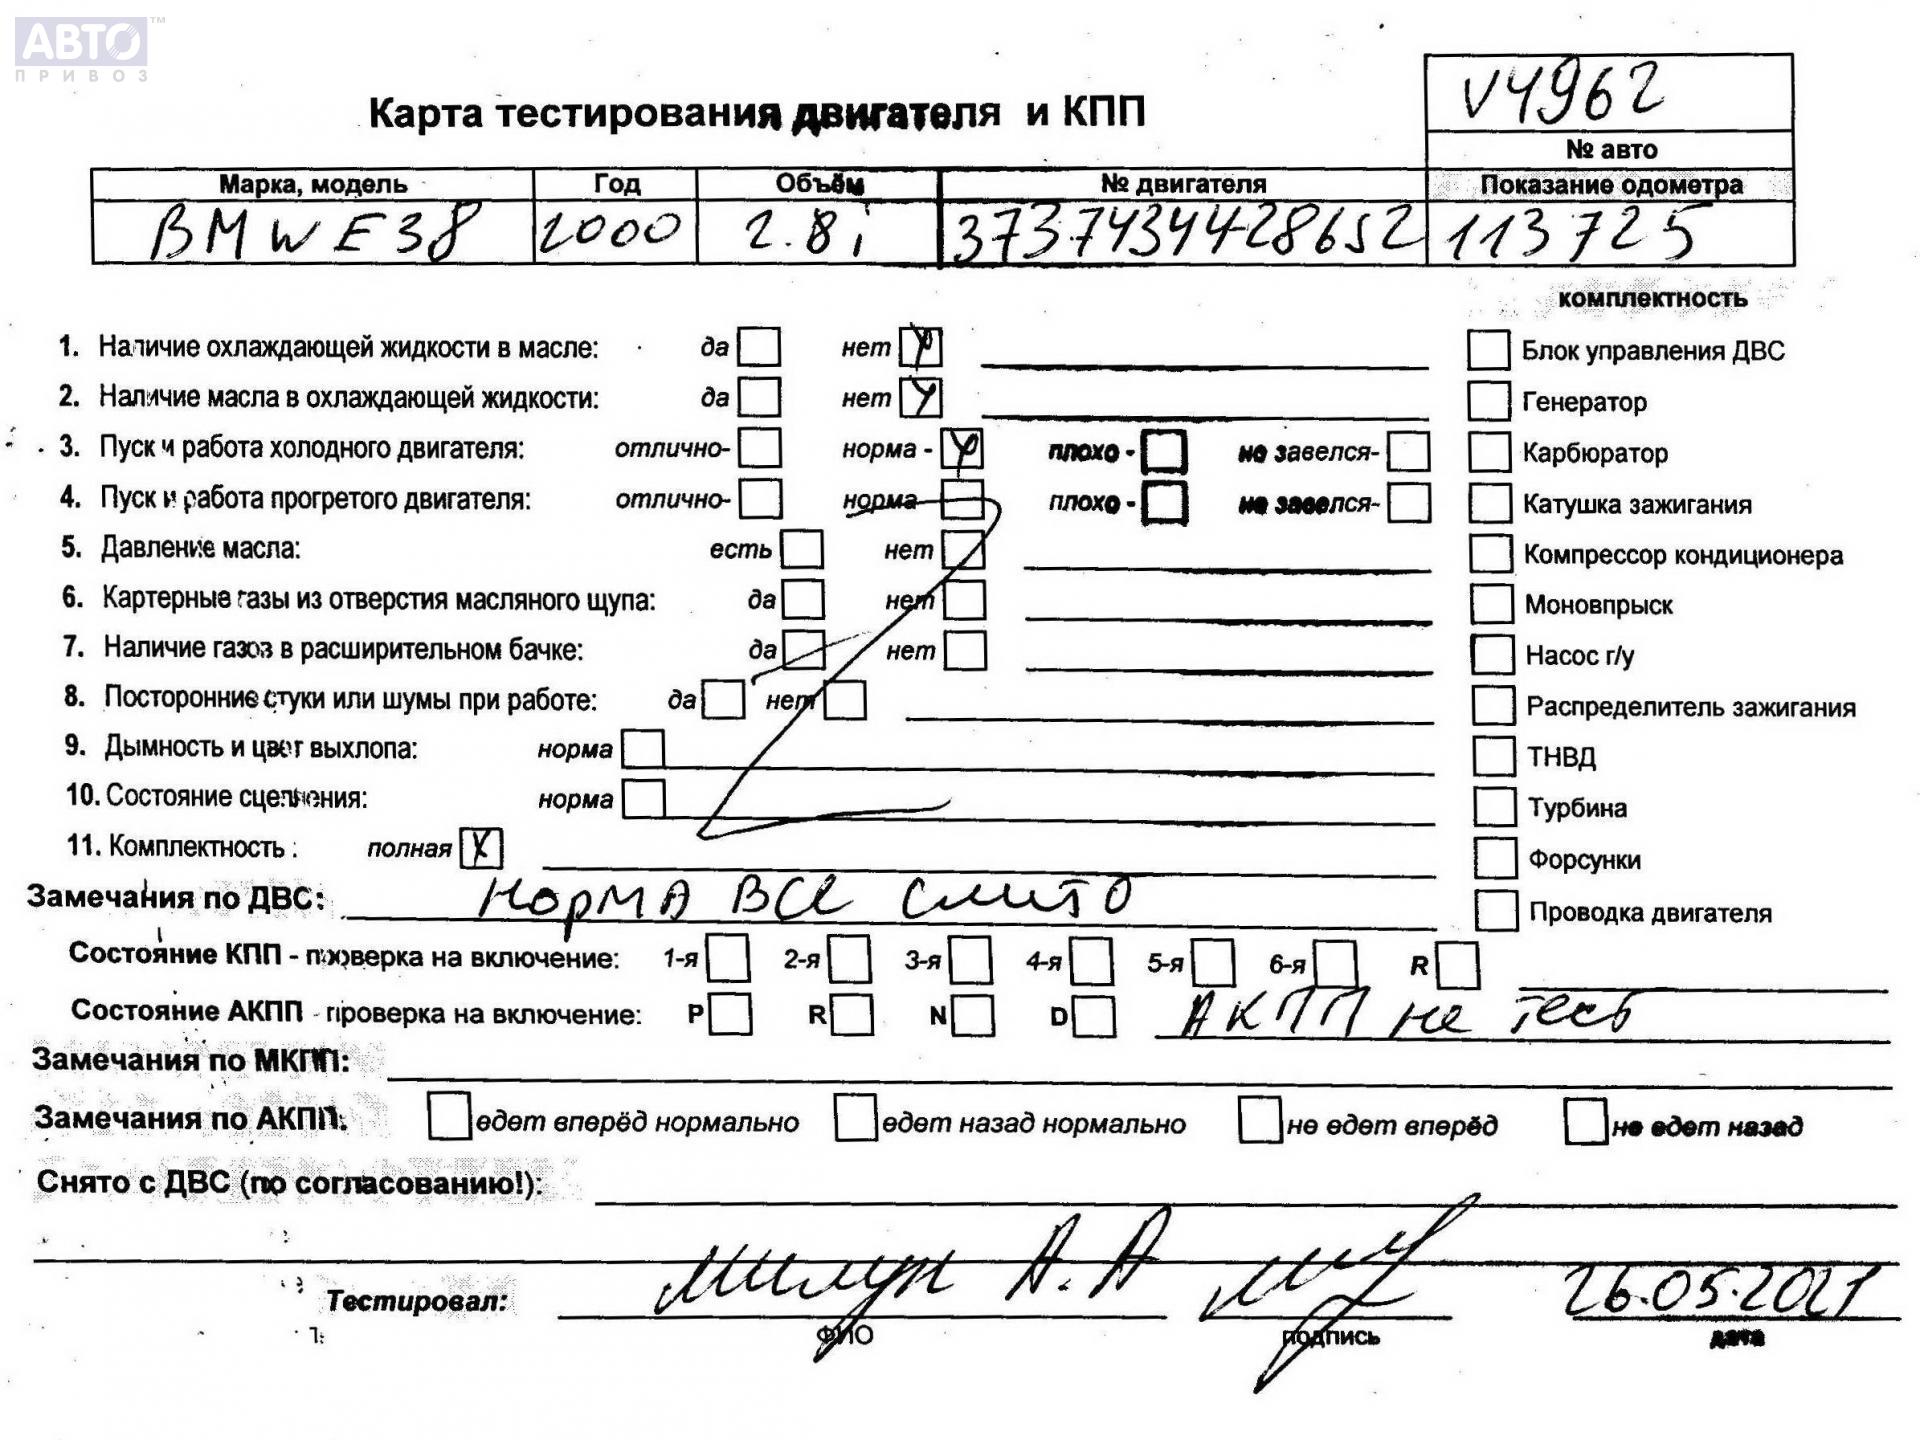 АВТО™
ПРИВОЗ
V4962
Карта тестирования двигателя и КПП
№ авто
Марка, модель Год Объём № двигателя Показание одометра
BMW E38 2000 2.8i 3737434428652 113725
комплектность
1. Наличие охлаждающей жидкости в масле: да нет
Блок управления ДВС
2. Наличие масла в охлаждающей жидкости: да нет
Генератор
3. Пуск и работа холодного двигателя: отлично- норма - плохо - не завелся-
Карбюратор
4. Пуск и работа прогретого двигателя: отлично- норма плохо - не завелся-
Катушка зажигания
5. Давление масла: есть нет
Компрессор кондиционера
6. Картерные газы из отверстия масляного щупа: да нет
Моновпрыск
7. Наличие газов в расширительном бачке: да нет
Насос г/у
8. Посторонние стуки или шумы при работе: да нет
Распределитель зажигания
9. Дымность и цвет выхлопа: норма
ТНВД
10. Состояние сцепления: норма
Турбина
11. Комплектность : полная
Форсунки
Замечания по ДВС: норма все слито
Проводка двигателя
Состояние КПП - проверка на включение: 1-я 2-я 3-я 4-я 5-я 6-я R
Состояние АКПП - проверка на включение: P R N D АКПП не тест
Замечания по МКПП:
Замечания по АКПП: едет вперёд нормально едет назад нормально не едет вперёд не едет назад
Снято с ДВС (по согласованию!):
Тестировал: Милун А.А 26.05.2021
ФИО подпись дата